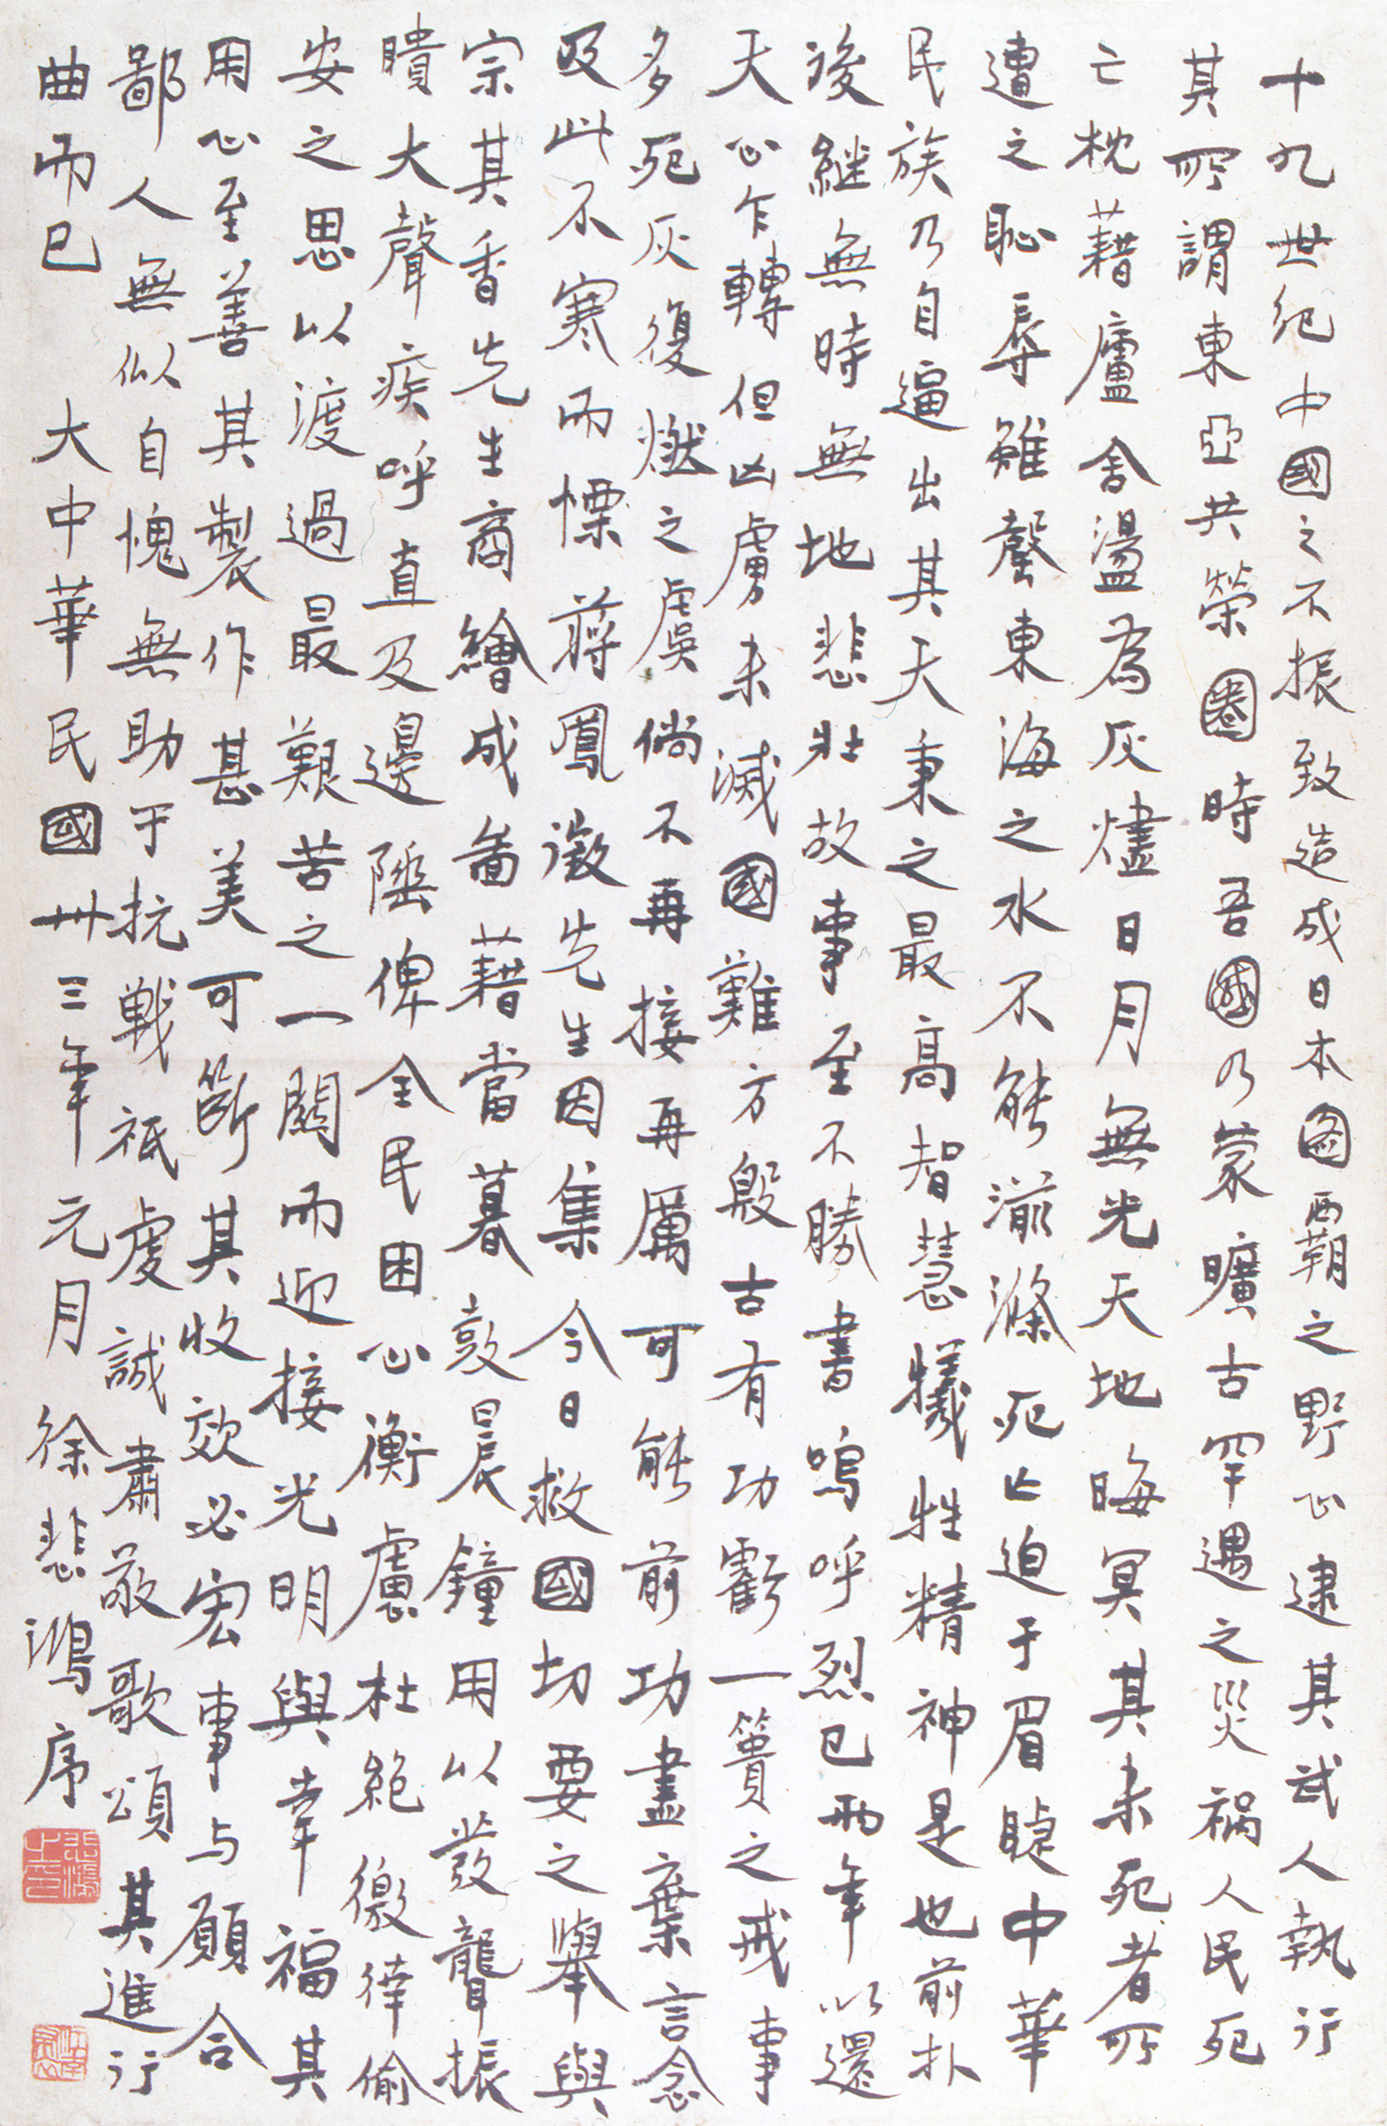 十九世紀中國之不振致造成日本圖霸之野心逮其武人執行
其所謂東亞共榮圈時吾國乃蒙曠古罕遇之災禍人民死
亡枕藉廬舍盪為灰燼日月無光天地晦冥其未死者所
遭之恥辱雖罄東海之水不能湔滌死亡迫于眉睫中華
民族乃自逼出其天秉之最高智慧犧牲精神是也前扑
後繼無時無地悲壯故事至不勝書嗚呼烈已兩年以還
天心乍轉但凶虜未滅國難方殷古有功虧一簣之戒事
多死灰復燃之虞倘不再接再厲可能前功盡棄言念
及此不寒而慄蔣鳳徵先生因集今日救國切要之舉與
宗其香先生商繪成圖藉當暮鼓晨鐘用以發聾振
聵大聲疾呼直及邊陲俾全民困心衡慮杜絕徼倖偷
安之思以渡過最艱苦之一關而迎接光明與幸福其
用心至善其製作甚美可斷其收效必宏事与願合
鄙人無似自愧無助于抗戰祇虔誠肅敬歌頌其進行
曲而已 大中華民國卅三年元月徐悲鴻序
悲鴻之印